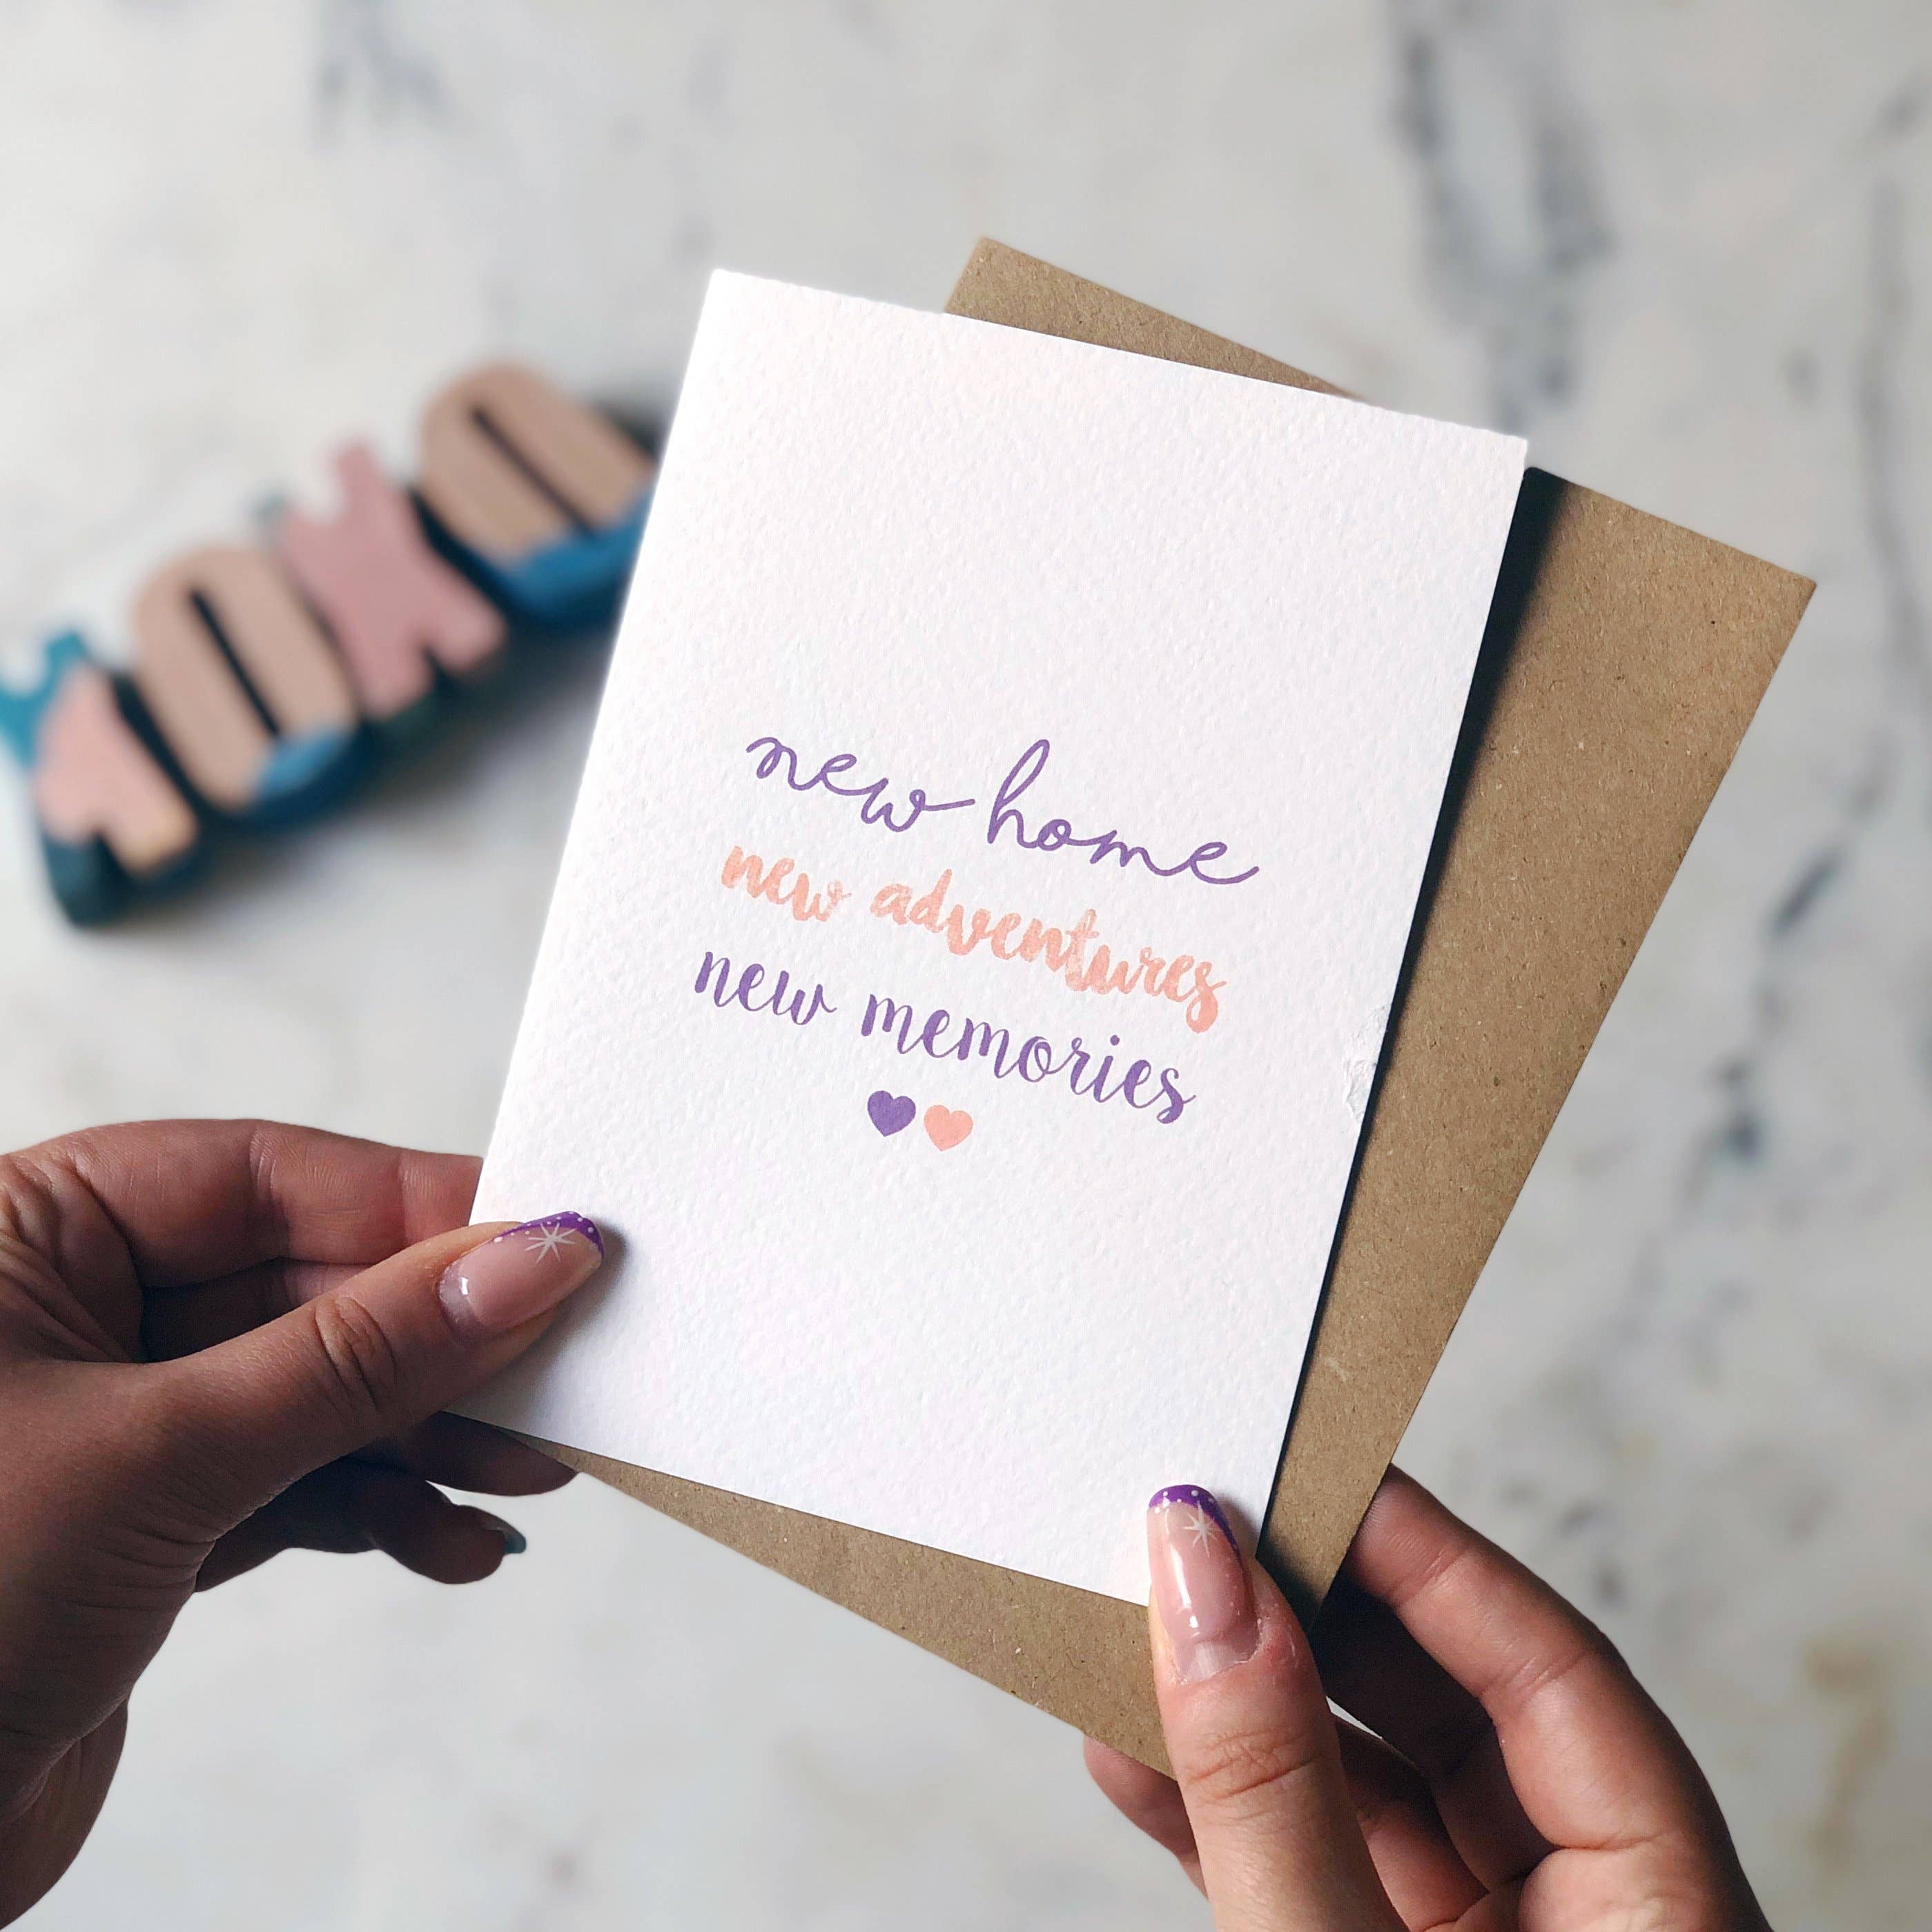 new home
new adventures
new memories